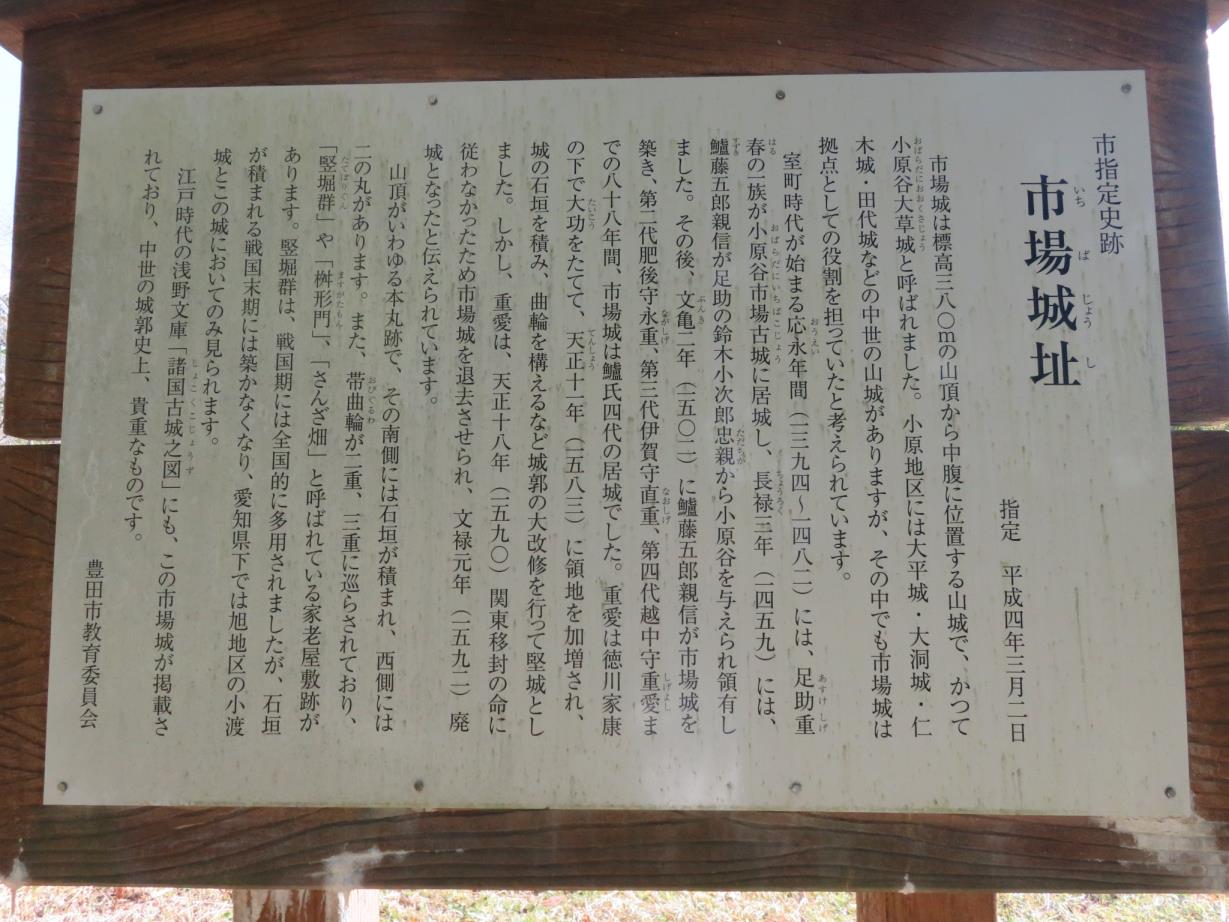 市指定史跡
市場城址
いちばじょうし
指定　平成四年三月二日
市場城は標高三八〇mの山頂から中腹に位置する山城で、かつて
小原谷大草城と呼ばれました。小原地区には大平城・大洞城・仁
木城・田代城などの中世の山城がありますが、その中でも市場城は
拠点としての役割を担っていたと考えられています。
室町時代が始まる応永年間（一三九四〜一四八二）には、足助重
春の一族が小原谷市場古城に居城し、長禄二年（一四五九）には、
鱸藤五郎親信が足助の鈴木小次郎忠親から小原谷を与えられ領有し
ました。その後、文亀二年（一五〇二）に鱸藤五郎親信が市場城を
築き、第二代肥後守永重、第三代伊賀守直重、第四代越中守重愛ま
での八十八年間、市場城は鱸氏四代の居城でした。重愛は徳川家康
の下で大功をたてて、天正十一年（一五八三）に領地を加増され、
城の石垣を積み、曲輪を構えるなど城郭の大改修を行って堅城とし
ました。しかし、重愛は、天正十八年（一五九〇）関東移封の命に
従わなかったため市場城を退去させられ、文禄元年（一五九二）廃
城となったと伝えられています。
山頂がいわゆる本丸跡で、その南側には石垣が積まれ、西側には
二の丸があります。また、帯曲輪が二重、三重に巡らされており、
「竪堀群」や「桝形門」、「さんざ畑」と呼ばれている家老屋敷跡が
あります。竪堀群は、戦国期には全国的に多用されましたが、石垣
が積まれる戦国末期には築かなくなり、愛知県下では旭地区の小渡
城とこの城においてのみ見られます。
江戸時代の浅野文庫「諸国古城之図」にも、この市場城が掲載さ
れており、中世の城郭史上、貴重なものです。
豊田市教育委員会